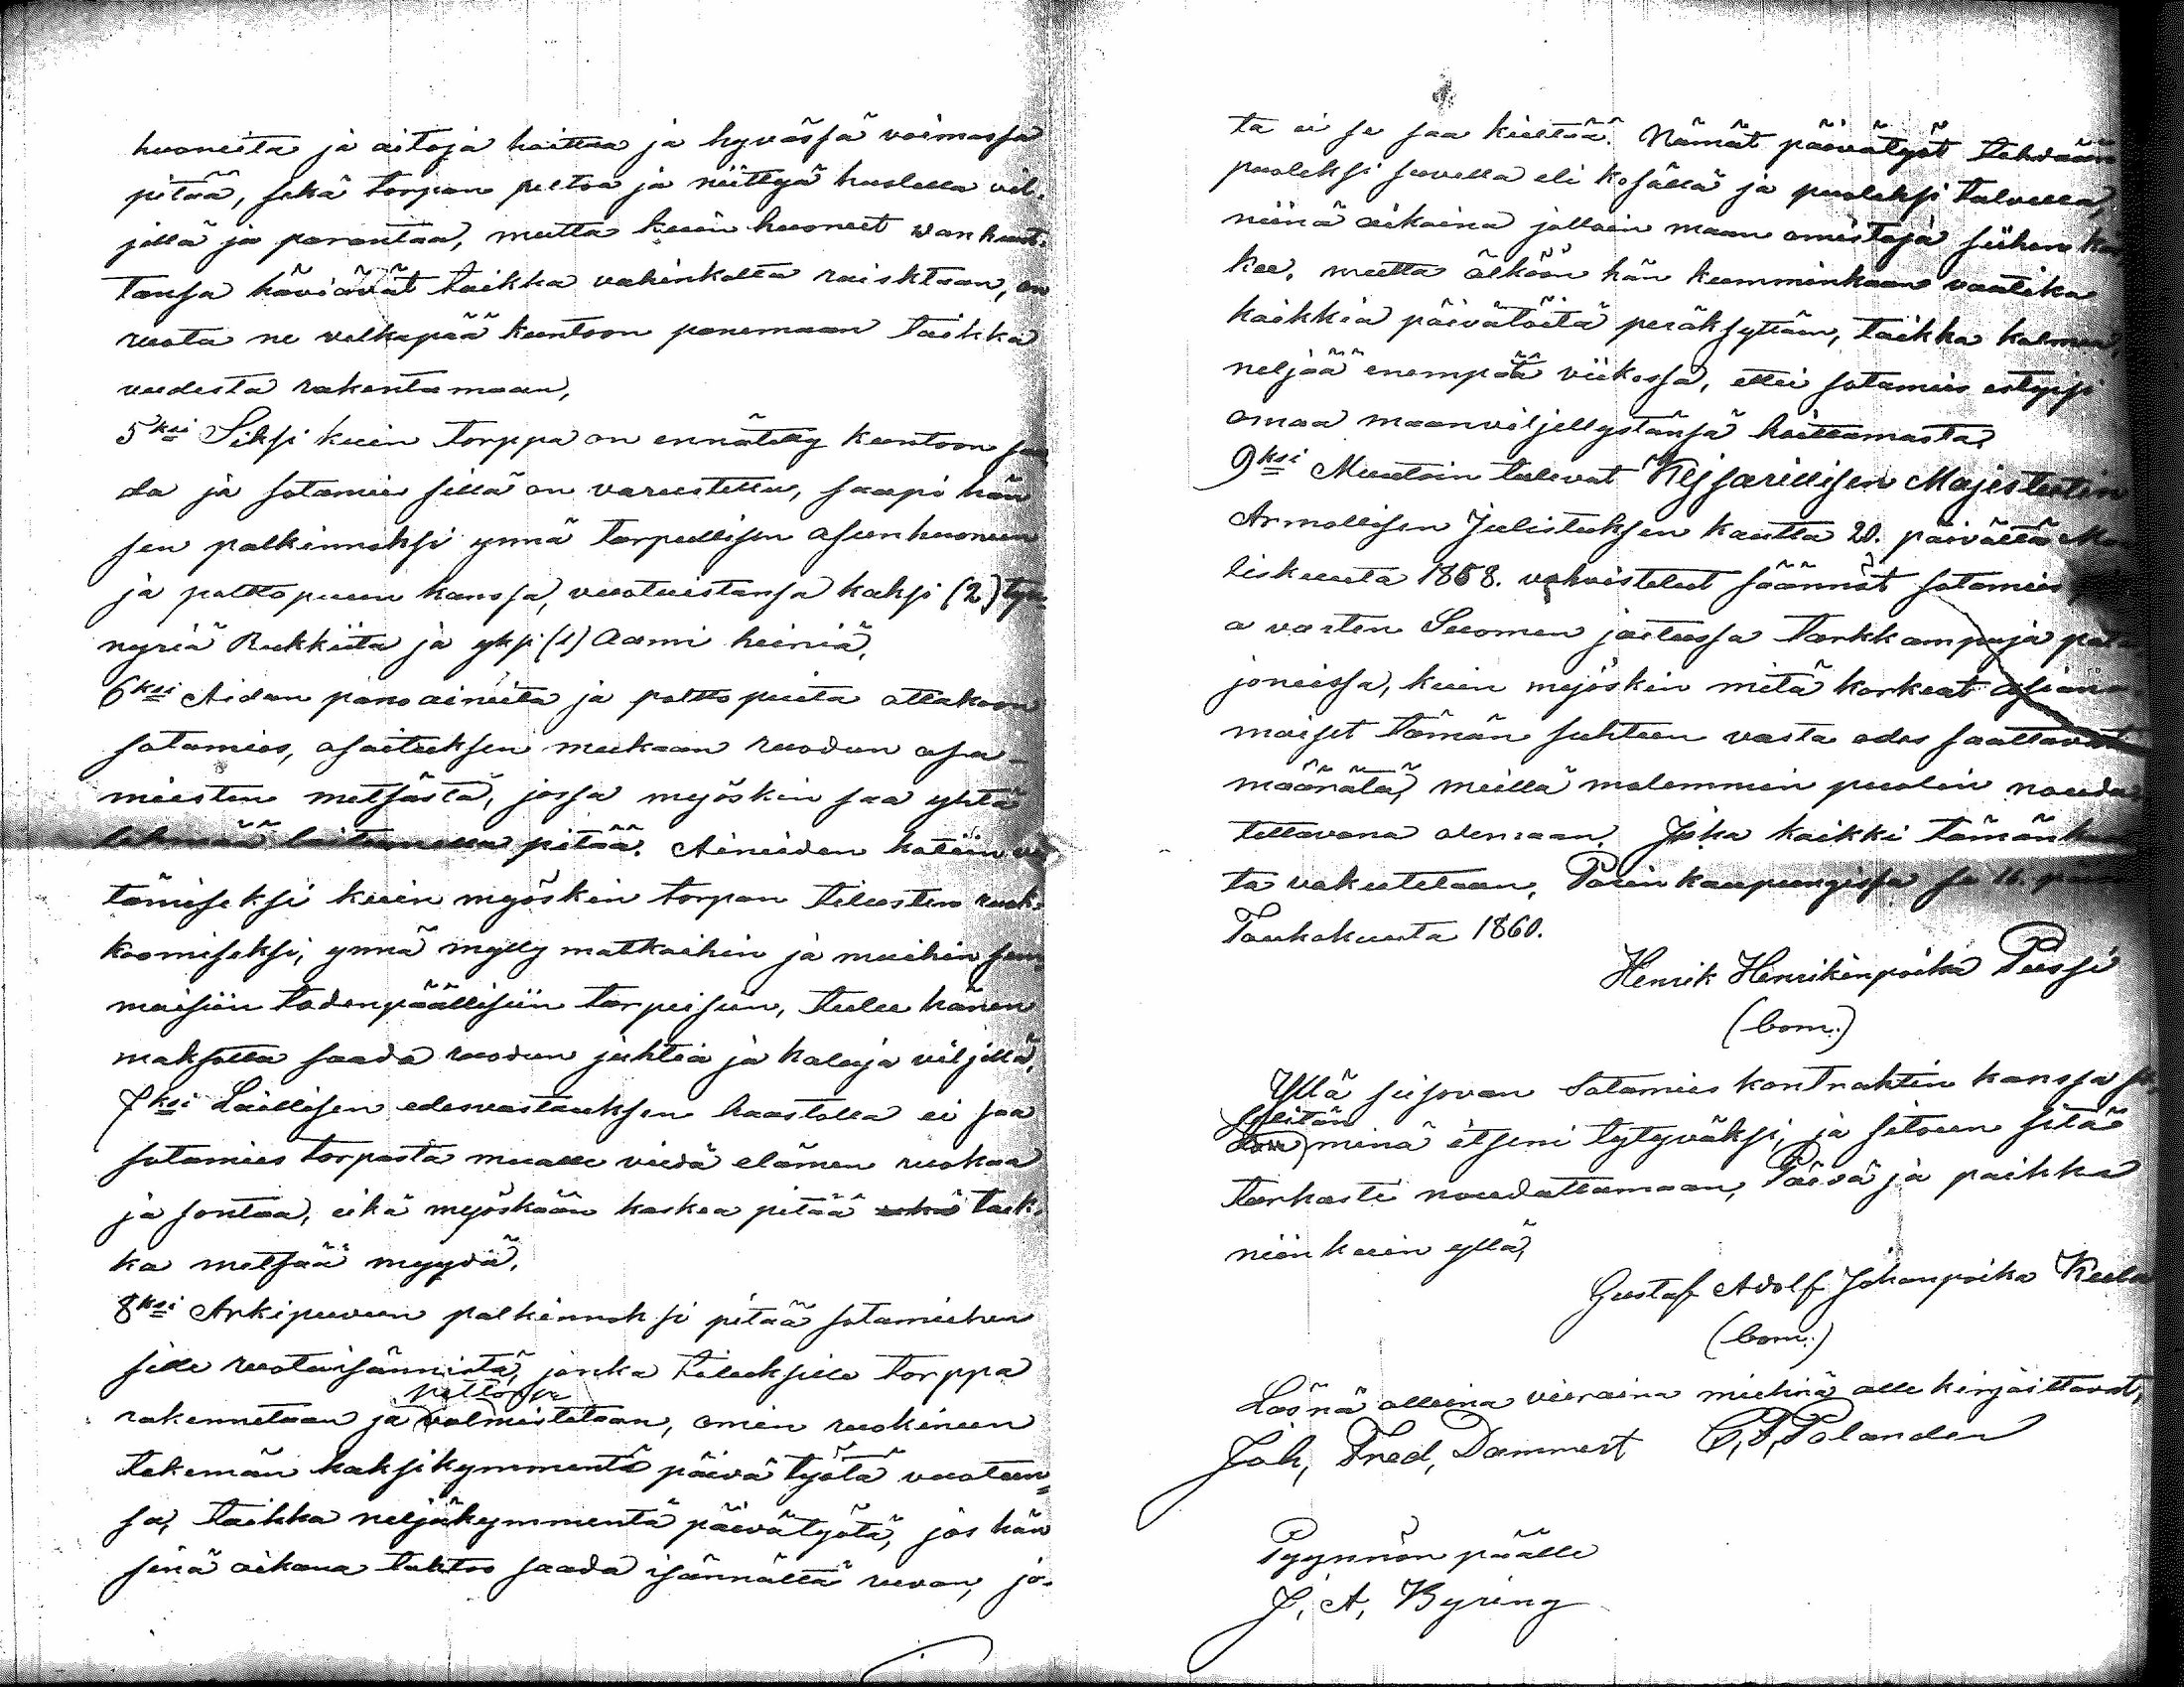 huoneita ja aitoja hoitaa ja hyvässä voimassa
pitää, sekä torpan peltoa ja niittyä huolella vil-
jellä ja parantaa, mutta kuin huoneet wanhuut-
tansa häviävät taikka vahinkolta raisktaan, on
ruota ne velkapää kuntoon panemaan taikka
uudesta rakentamaan,
5ksi Siksi kuin torppa on ennätetty kuntoon saa
da ja sotamies sillä on varustettu, saapi hän
sen palkinnoksi ynnä tarpeellisen asunhuoneen
ja polttopuun kanssa, vuotuistansa kaksi (2) tyn-
nyriä Rukkiita ja yksi (1) Aami heiniä,
6ksi Aidan pano aineita ja poltto puita ottakoon
sotamies, asoituksen mukaan ruodun osa-
miesten metsästä, jossa myöskin saa yhtä
lehmää laitumella pitää. Aineiden kotiin vet
tämiseksi kuin myöskin torpan tilusten ruok-
koomiseksi, ynnä mylly matkoihin ja muihin sem
maisiin todenpäällisiin tarpeisiin, tulee hänen
maksotta saada ruodun juhtia ja kaluja viljellä,
7ksi Laillisen edesvastauksen haastolla ei saa
sotamies torpasta mualle viedä elämen ruokaa
ja sontaa, eikä myöskään kaskea pitää taik-
ka metsää myydä,
8ksi Arkipuvun palkinnoksi pitää sotamiehen
sille ruotuisännistä, jonka tiluksille torppa
peltonsa
rakennetaan ja valmistetaan, omin ruokineen
tekemän kaksikymmentä päivä työtä vuoteen-
sa, taikka neljäkymmentä päivätyötä, jos hän
sinä aikana tahtoo saada isännältä ruvan, jo-
ta ei se saa kieltää. Nämät päivätyöt tehdään
puoleksi suvella eli kesällä ja puoleksi talvella,
niinä aikoina jolloin maan omistaja siihen kas
kee, mutta älköön hän kumminkaan vaatiko
kaikkia päivätöitä peräksyttäin, taikka kolmea,
neljää enempää viikossa, ettei sotamies estyisi
omaa maanviljellystänsä hoittamasta,
9ksi Muutoin tulevat Kejsarillisen Majesteetin
Armollisen Julistuksen kautta 20. päivältä Maa
liskuuta 1858. vahvistetut säännöt sotamies
a varten Suomen jaetussa tarkkampuja pata
joneissa, kuin myöskin mitä korkeat asiano
maiset tämän suhteen vasta edes saattavat
määrätä, meillä molemmin puolin nouda
tettavana olemaan, Joka kaikki tämän kaut
ta vakutetaan, Porin kaupungissa se 16. päivä
Toukokuuta 1860.
Henrik Henrikinpoika Pussi
(bom.)
Yllä seisovan Sotamies kontrahtin kanssa se,
selitän
minä itseni tytyväksi, ja sitoun sitä
tarkasti noudattamaan, Päivä ja paikka
niinkuin yllä,
Gustaf Adolf Johanpoika Kuula
(bom.)
Läsnä olleina vieraina miehinä alle kirjoittavat,
Joh, Fred, Dammert G, F, Polander
Pyynnön päälle
J, A, Byring